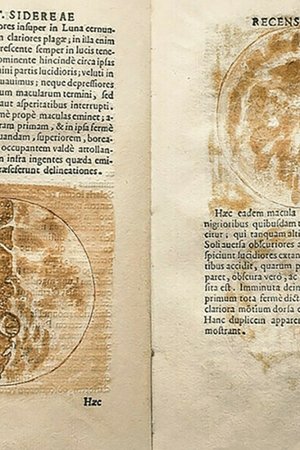 T. SIDEREAE
ores insuper in Luna cernun-
n clariores plagæ; in illa enim
rescente semper in lucis tene-
ominente hincinde circa ipsas
uini partis lucidioris; veluti in
uauimus; neque depressiores
m macularum termini, sed
aut asperitatibus interrupti.
me propè maculas eminet; a-
ram primam, & in ipsa fermè
uandam, superiorem, borea-
occupantem valdè attollan-
n infra ingentes quæda emi-
ræseferunt delineationes.
Hæc
RECENS
Hæc eadem macula
nigrioribus quibusdam
citur; qui tanquam alti
Soli auersa obscuriores
spiciunt lucidiores extan
tibus accidit, quarum p
paret, obscura verò, ac
sita est. Imminuta dein
primum tota fermè dict
clariora mótium dorsa
Hanc duplicem appare
mostrant.